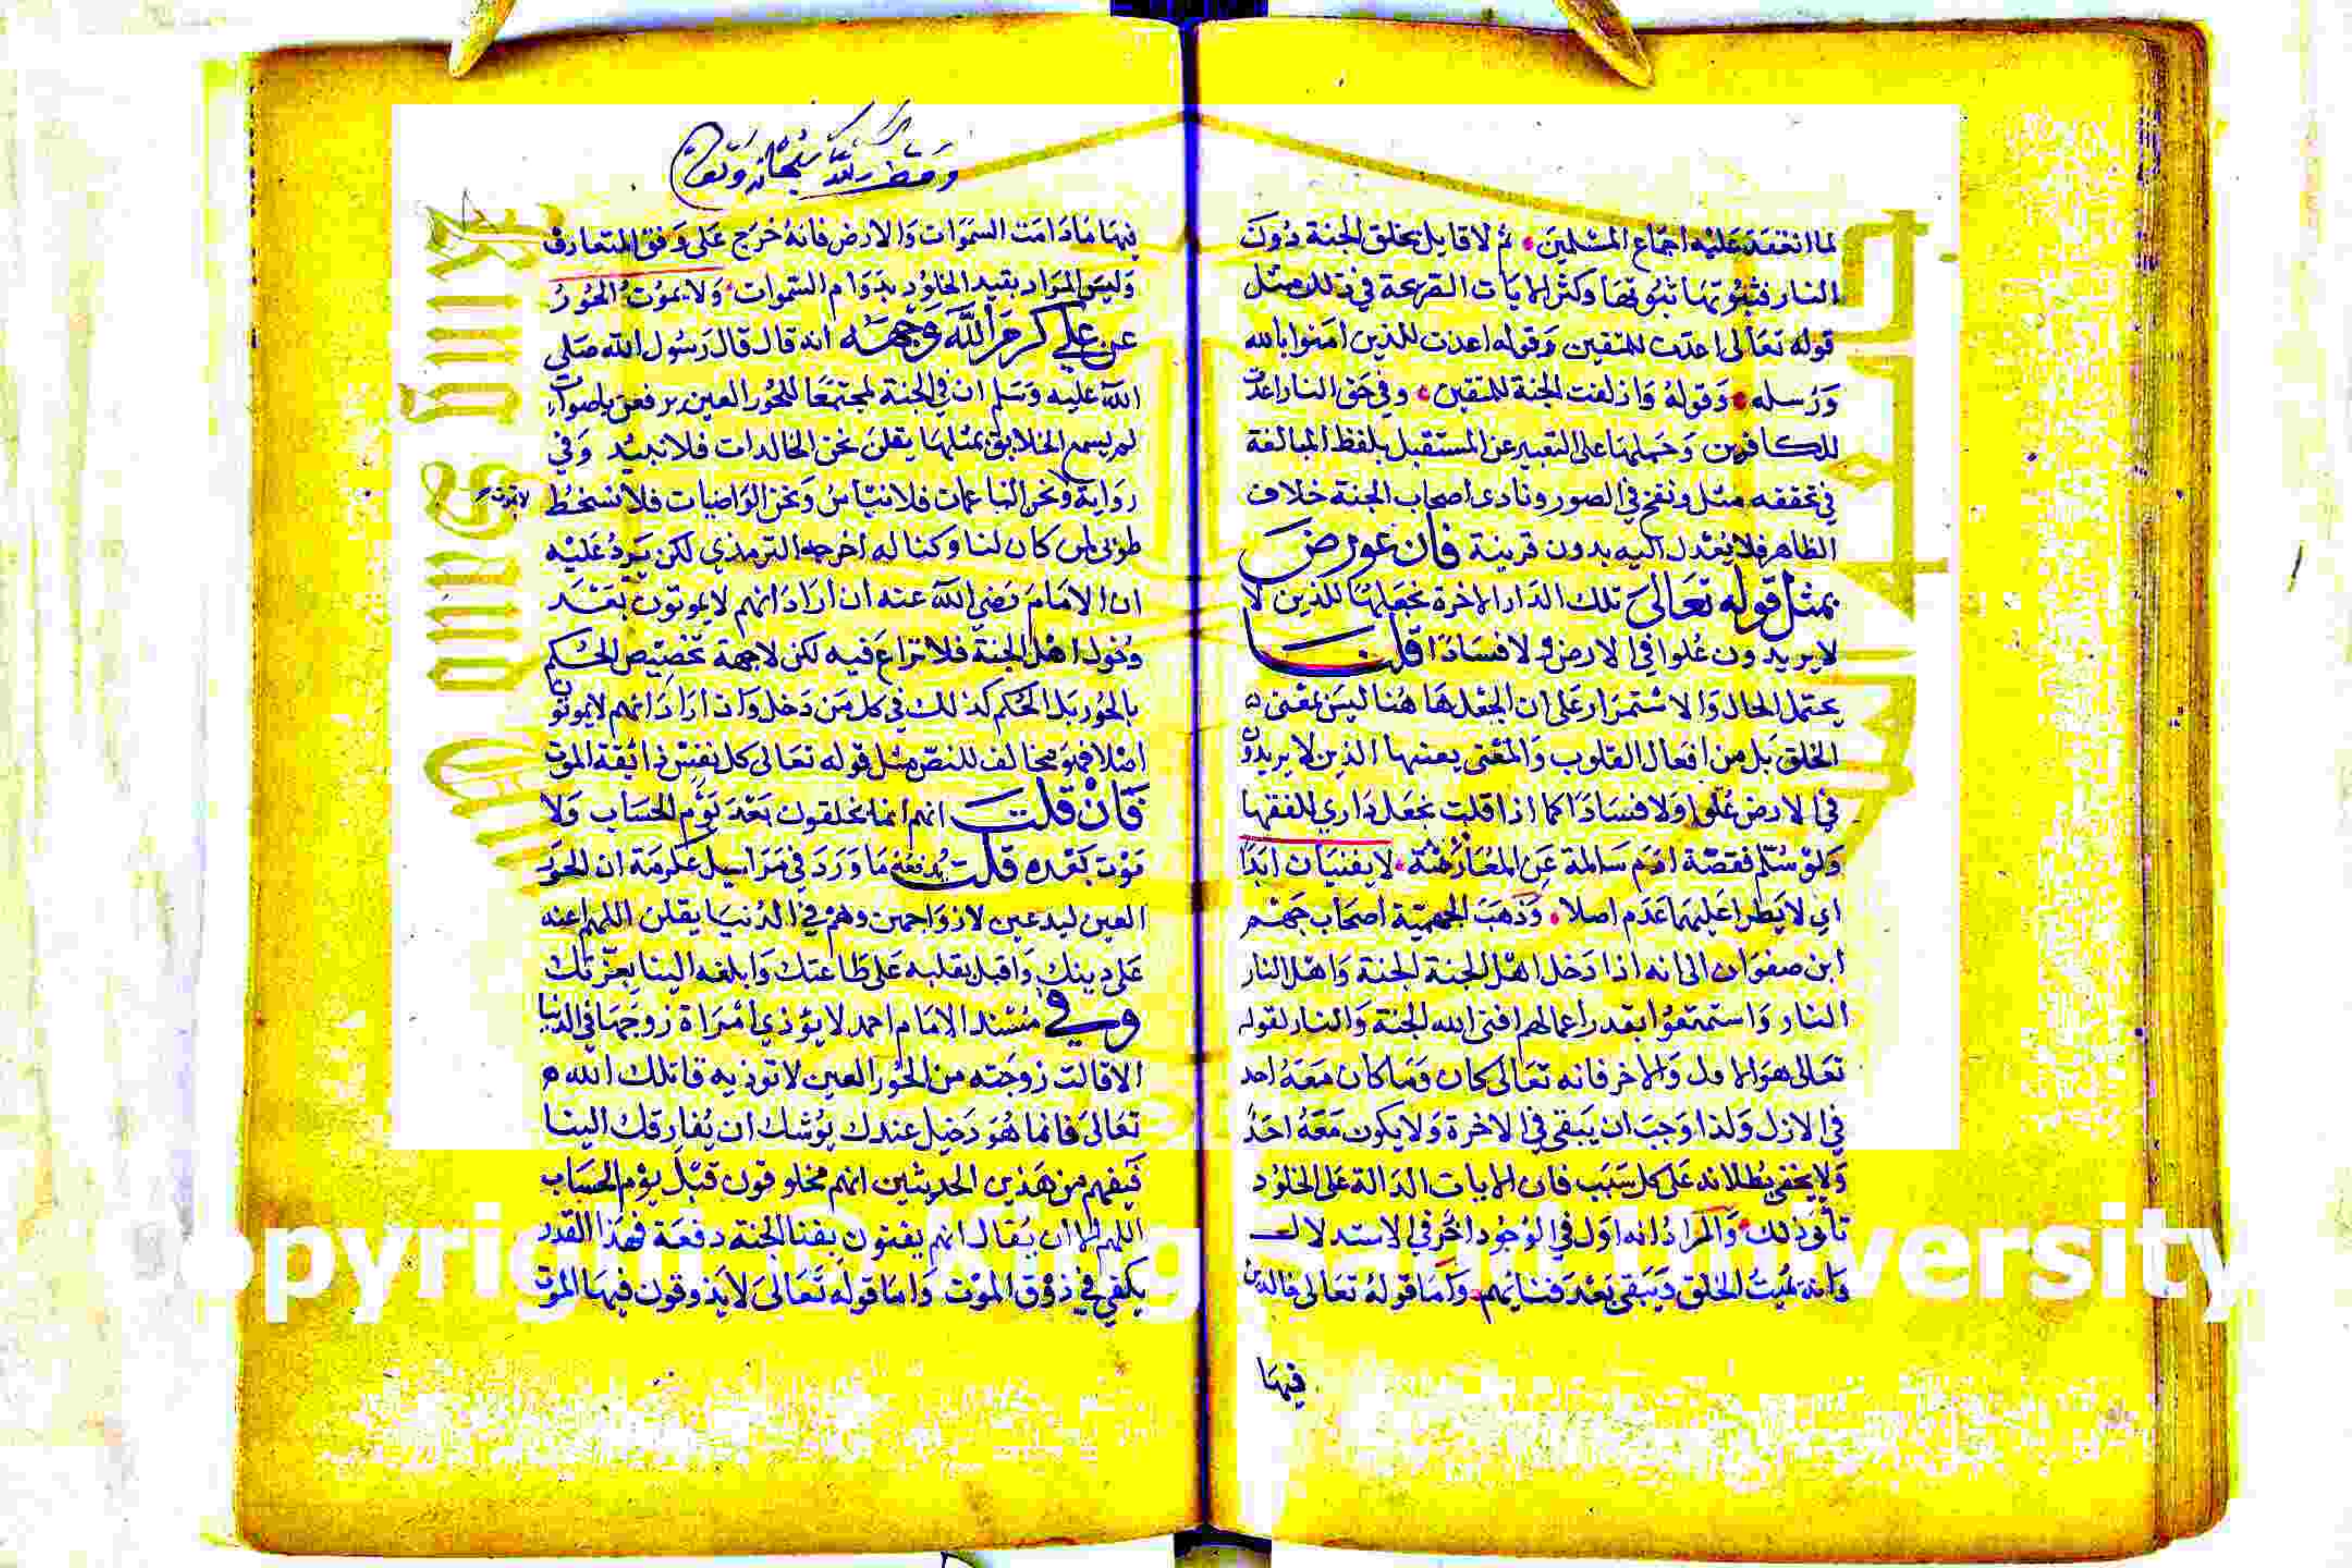 لما انعقد عليه اجماع المسلمين ثم لا قايل بخلق الجنة دون
النار فثبوتها ثبوتها وكثر الايات الصريحة في ذلك مثل
قوله تعالى اعدت للمتقين وقوله اعدت للذين امنوا بالله
ورسله وقوله وازلفت الجنة للمتقين وفي حق النار اعدت
للكافرين وحملها على التعبير عن المستقبل بلفظ المبالغة
في تحققه مثل ونفخ في الصور ونادى اصحاب الجنة خلاف
الظاهر فلا يعدل اليه بدون قرينة فان عورض
بمثل قوله تعالى تلك الدار الاخرة نجعلها للذين لا
لا يريدون علوا في الارض ولا فسادا قلت
يحتمل الحال والاستمرار على ان الجعل ها هنا ليس بمعنى
الخلق بل من افعال القلوب والمعنى يعينها الذين لا يريدون
في الارض علوا ولا فسادا كما اذا قلت نجعل داري للفقها
ولو سلم فقصة ادم سالمة عن المعارضة لا يفنيان ابدا
اي لا يطرا عليهما عدم اصلا وذهب الجهمية اصحاب جهم
ابن صفوان الى انه اذا دخل اهل الجنة الجنة واهل النار
النار واستمتعوا بقدر اعمالهم افنى الله الجنة والنار لقوله
تعالى هو الاول والاخر فانه تعالى كان وما كان معه احد
في الازل ولذا وجب ان يبقى في الاخرة ولا يكون معه احد
ولا يخفى بطلانه على كل سبب فان الايات الدالة على الخلود
تابى ذلك والمراد انه اول في الوجود اخر في الاستدلال
وانه يميت الخلق ويبقى بعد فنائهم واما قوله تعالى خالدين
فيها
وقف لله سبحانه وتعالى
فيها ما دامت السموات والارض فانه خرج على وفق المتعارف
وليس المراد بقيد الخلود بدوام السموات ولا يموت الحور
عن علي كرم الله وجهه انه قال قال رسول الله صلى
الله عليه وسلم ان في الجنة لمجتمعا للحور العين يرفعن باصوات
لم يسمع الخلايق بمثلها يقلن نحن الخالدات فلا نبيد وفي
رواية ونحن الناعمات فلا نبأس ونحن الراضيات فلا نسخط
طوبى لمن كان لنا وكنا له اخرجه الترمذي لكن يرد عليه
ان الامام رضي الله عنه ان اراد انهم لا يموتون بعد
دخول اهل الجنة فلا نزاع فيه لكن لا جهة تخصيص الحكم
بالحور بل الحكم كذلك في كل من دخل واذا اراد انهم لا يموتون
اصلا فهو مخالف للنص مثل قوله تعالى كل نفس ذائقة الموت
فان قلت انهم انما يخلقون بعد يوم الحساب ولا
موت بعده قلت يدفعه ما ورد في مراسيل عكرمة ان الحور
العين ليدعين لازواجهن وهم في الدنيا يقلن اللهم اعنه
على دينك واقبل بقلبه على طاعتك وابلغه الينا بعزتك
وفي مسند الامام احمد لا يؤذي امراة زوجها في الدنيا
الا قالت زوجته من الحور العين لا توذيه قاتلك الله
تعالى فانما هو دخيل عندك يوشك ان يفارقك الينا
فيفهم من هذين الحديثين انهم مخلوقون قبل يوم الحساب
اللهم الا ان يقال انهم يفنون بفنا الجنة دفعة فهذا القدر
يكفي في ذوق الموت واما قوله تعالى لا يذوقون فيها الموت
Copyright © King Saud University